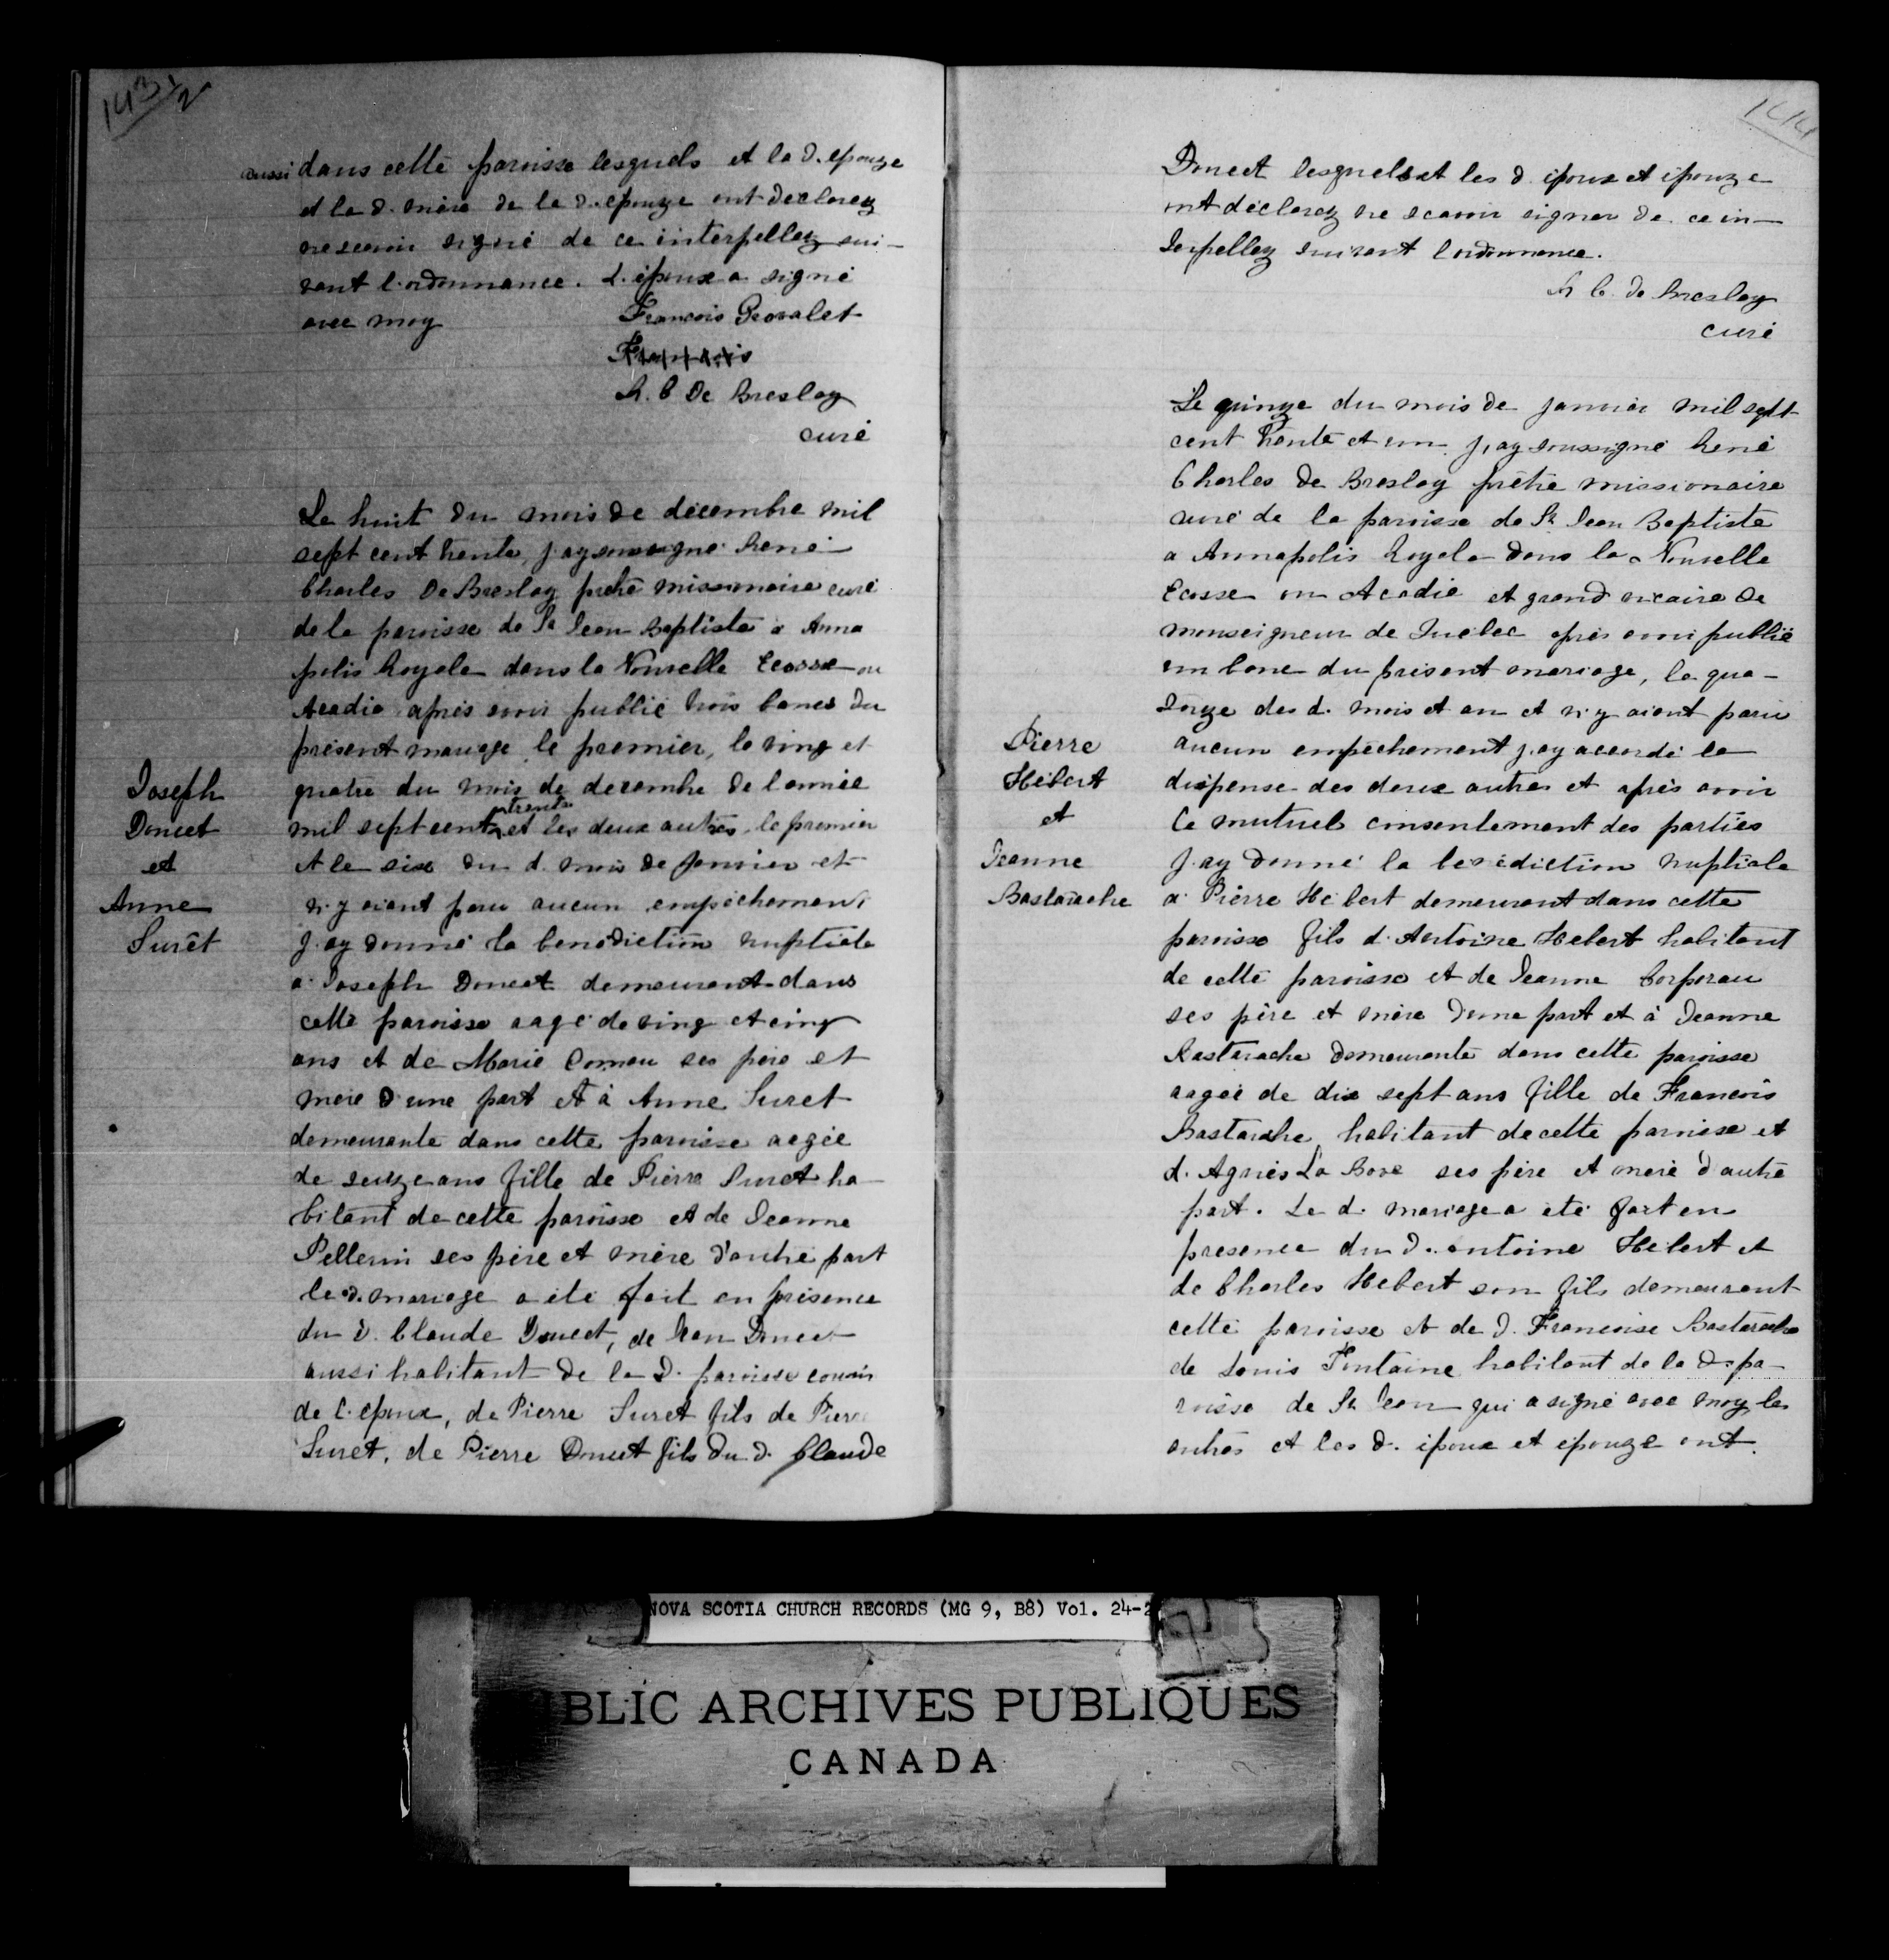 143 1/2
aussi dans cette paroisse lesquels et la d. epouze
et la d. mère de la d. epouze ont declarez
ne scavoir signé de ce interpellez sui-
vant l'ordonnance. L'époux a signé
avec moy François Provalet
R. C De Breslay
curé
Le huit du mois de décembre mil
sept cent trente, j'ay soussigné René
Charles De Breslay prêtre missionaire curé
de la paroisse de St Jean Baptiste a Anna
polis Royale dans la Nouvelle Ecosse ou
Acadie après avoir publié trois bancs du
présent mariage le premier, le ving et
quatre du mois de decembre de l'année
mil sept cent trente et les deux autres, le premier
et le six du d. mois de Janvier et
n'y aiant paru aucun empêchement
j'ay donné la benediction nuptiale
a Joseph Doucet demeurant dans
cette paroisse aagé de ving et cinq
ans et de Marie Comeau ses père et
mère d'une part et à Anne Suret
demeurante dans cette paroisse aagée
de seize ans fille de Pierre Suret ha-
bitant de cette paroisse et de Jeanne
Pellerin ses père et mère d'autre part
le d. mariage a été fait en présence
du d. Claude Doucet, de Jean Doucet
aussi habitant de la d. paroisse cousin
de l'epoux, de Pierre Suret fils de Pierre
Suret, de Pierre Doucet fils du d. Claude
Joseph
Doucet
et
Anne
Surêt
144
Doucet lesquels et les d. époux et épouze
ont déclarez ne scavoir signer de ce in-
terpellez suivant l'ordonnance.
R C. de Breslay
curé
Le quinze du mois de janvier mil sept
cent trente et un j'ay soussigné René
Charles De Breslay prêtre missionaire
curé de la paroisse de St Jean Baptiste
a Annapolis Royale dans la Nouvelle
Ecosse ou Acadie et grand vicaire de
monseigneur de Quebec après avoir publié
un banc du présent mariage, le qua-
torze des d. mois et an et n'y aiant paru
aucun empêchement j'ay accordé la
dispense des deux autres et après avoir
le mutuel consentement des parties
j'ay donné la benédiction nuptiale
a Pierre Hébert demeurant dans cette
paroisse fils d'Antoine Hebert habitant
de cette paroisse et de Jeanne Corporau
ses père et mère d'une part et à Jeanne
Bastarache demeurante dans cette paroisse
aagée de dix sept ans fille de François
Bastarache habitant de cette paroisse et
d'Agnès La Bove ses père et mère d'autre
part. Le d. mariage a été fait en
presence du d. antoine Hébert et
de Charles Hebert son fils demeurant
cette paroisse et de d. Francoise Bastarache
de Louis Fontaine habitant de la d. pa-
roisse de St Jean qui a signé avec moy les
autres et les d. époux et épouze ont.
Pierre
Hébert
et
Jeanne
Bastarache
NOVA SCOTIA CHURCH RECORDS (MG 9, B8) Vol. 24-2
BLIC ARCHIVES PUBLIQUES
CANADA